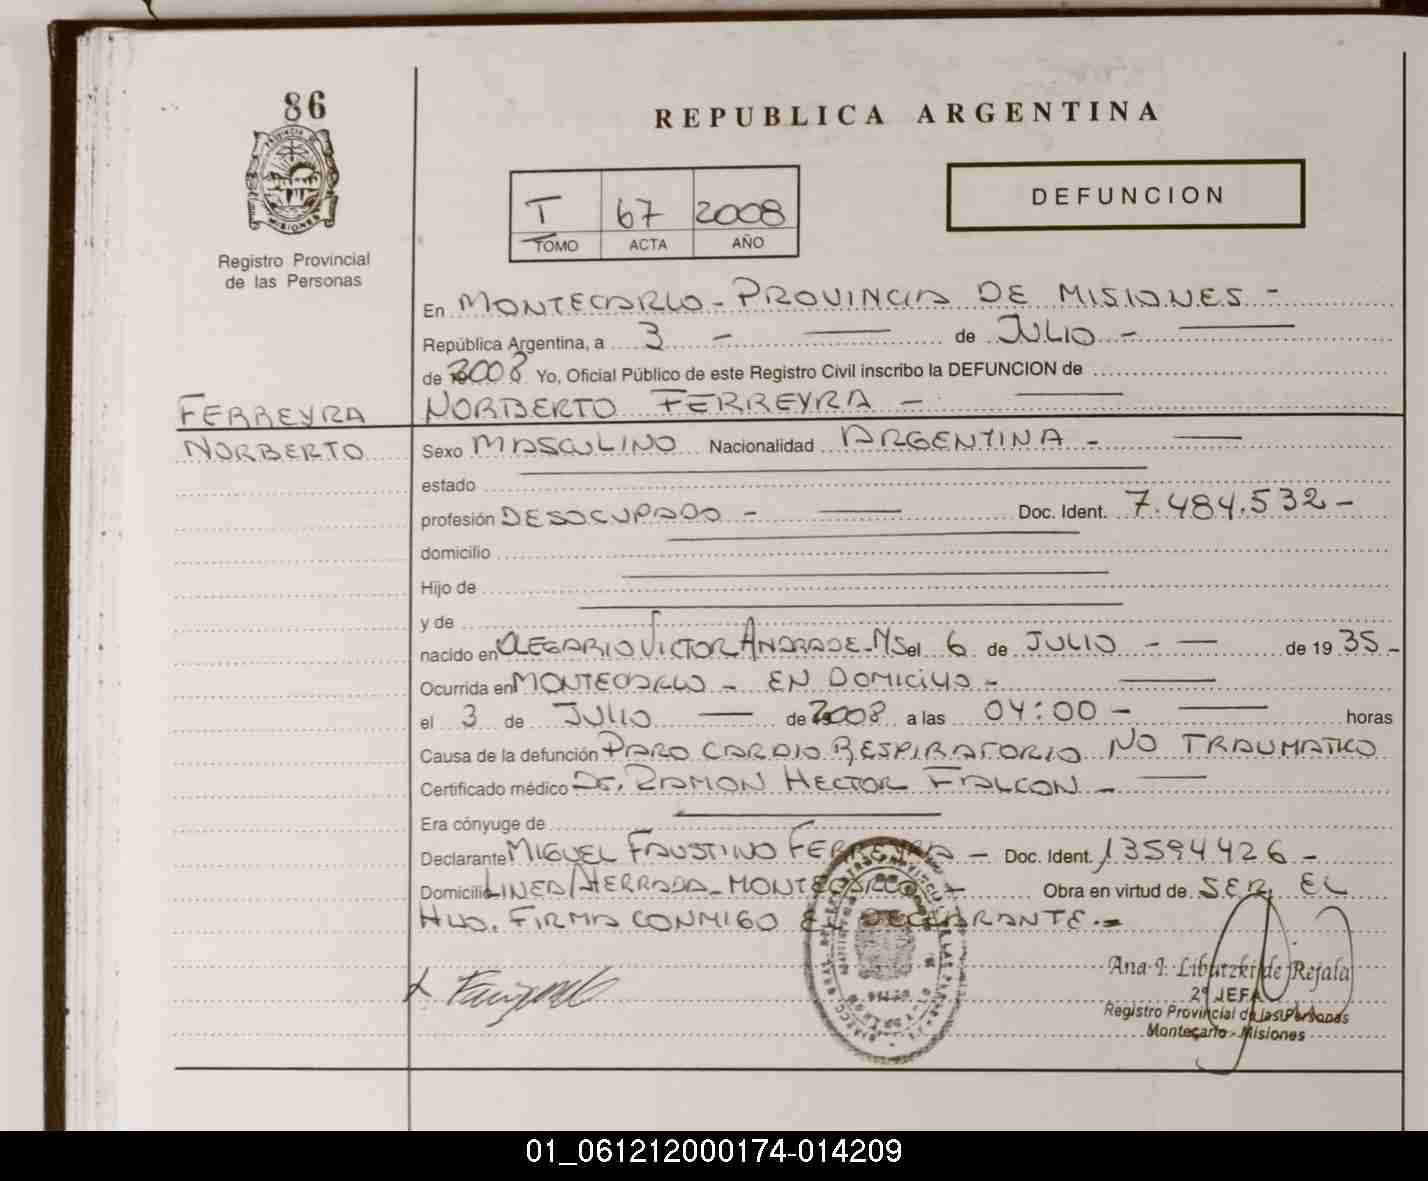 86
PROVINCIA DE
MISIONES
Registro Provincial
de las Personas
REPUBLICA ARGENTINA
T 67 2008
TOMO ACTA AÑO
DEFUNCION
En MONTECARLO - PROVINCIA DE MISIONES -
República Argentina, a 3 - de JULIO -
de 2008 Yo, Oficial Público de este Registro Civil inscribo la DEFUNCION de
FERREYRA NORBERTO FERREYRA -
NORBERTO Sexo MASCULINO Nacionalidad ARGENTINA -
estado
profesión DESOCUPADO - Doc. Ident. 7.484.532 -
domicilio
Hijo de
y de
nacido en OLEGARIO VICTOR ANDRADE - MS el 6 de JULIO - de 1935 -
Ocurrida en MONTECARLO - EN DOMICILIO -
el 3 de JULIO de 2008 a las 04:00 - horas
Causa de la defunción PARO CARDIO RESPIRATORIO NO TRAUMATICO
Certificado médico Dr. RAMON HECTOR FALCON -
Era cónyuge de
Declarante MIGUEL FAUSTINO FERREYRA - Doc. Ident. 13594426 -
Domicilio LINEA ATERRADA - MONTECARLO - Obra en virtud de SER EL
HIJO. FIRMA CONMIGO EL DECLARANTE.-
Ana I. Libutzki de Rejala
2º JEFA
Registro Provincial de las Personas
Montecarlo - Misiones
01_061212000174-014209